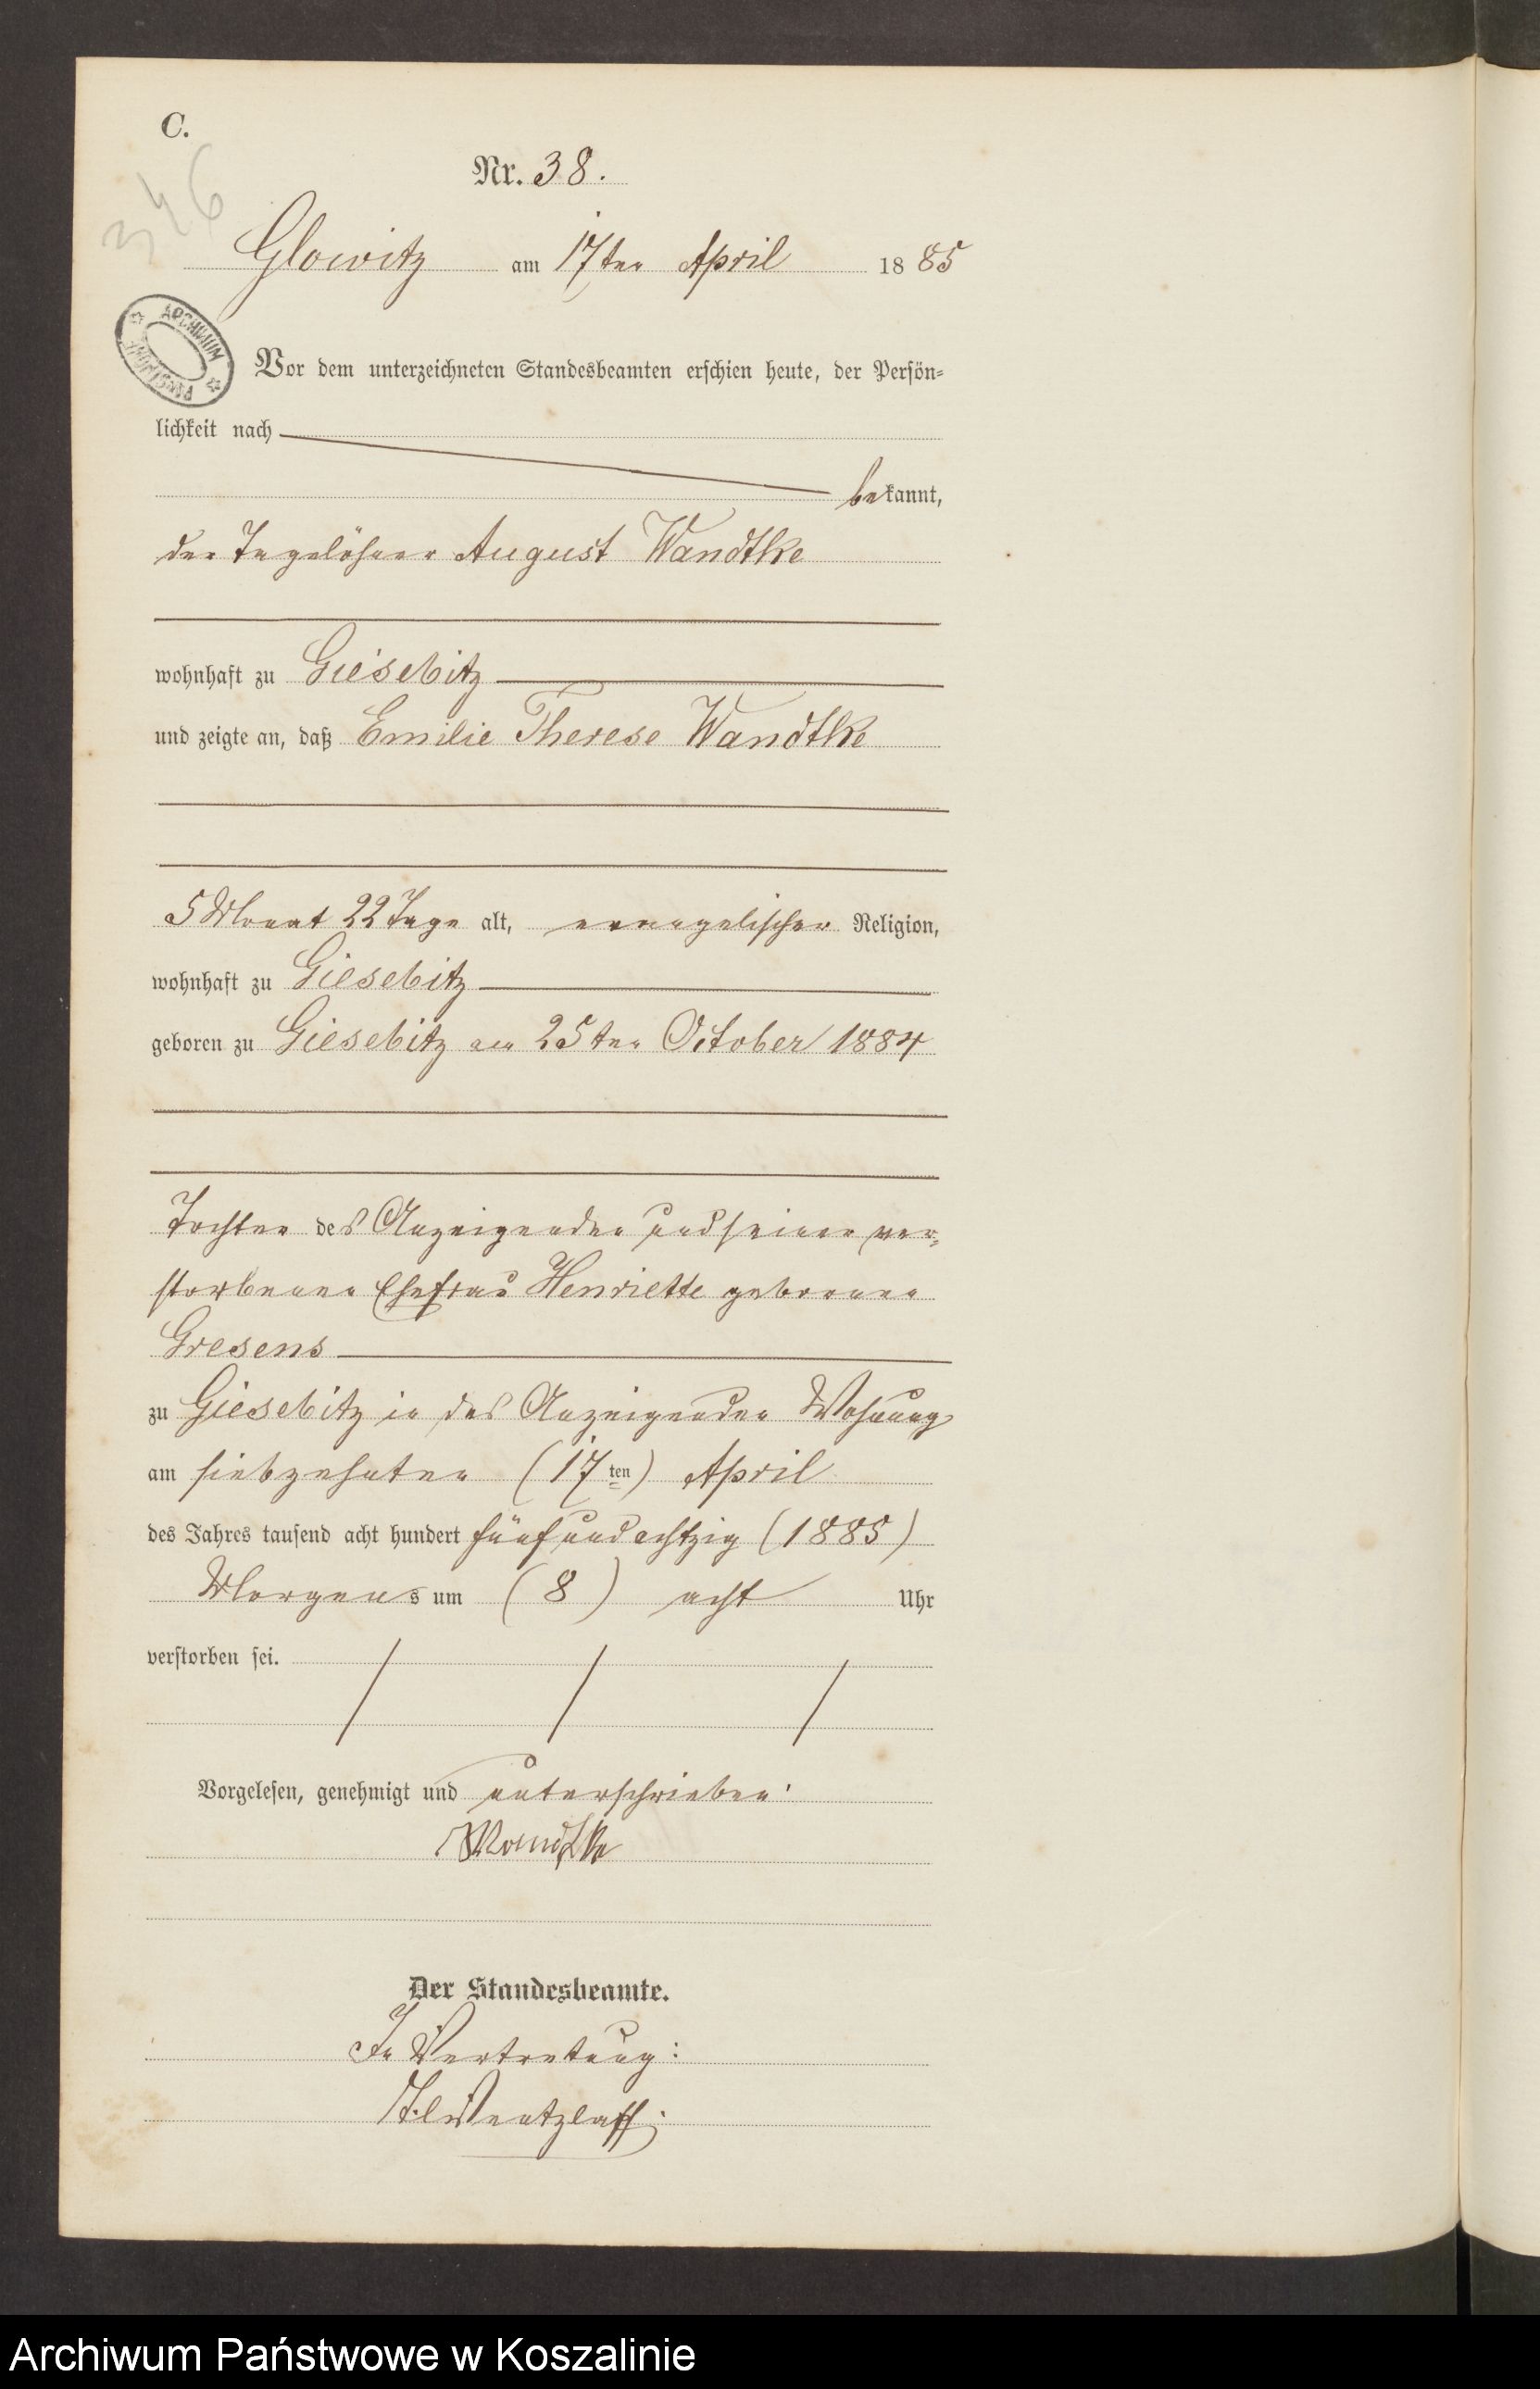 C.
346
Nr. 38.
Glowitz am 17ten April 1885
ARCHIWUM PAŃSTWOWE
Vor dem unterzeichneten Standesbeamten erschien heute, der Persön-
lichkeit nach
bekannt,
der Tagelöhner August Wandtke
wohnhaft zu Giesebitz
und zeigte an, daß Emilie Therese Wandtke
5 Monat 22 Tage alt, evangelischer Religion,
wohnhaft zu Giesebitz
geboren zu Giesebitz am 25ten October 1884
Tochter des Anzeigenden und seiner ver-
storbenen Ehefrau Henriette geborenen
Gresens
zu Giesebitz in des Anzeigenden Wohnung
am siebzehnten (17ten) April
des Jahres tausend acht hundert fünfundachtzig (1885)
Morgens um (8) acht Uhr
verstorben sei.
Vorgelesen, genehmigt und unterschrieben:
Wandtke
Der Standesbeamte.
In Vertretung:
Wentzlaff.
Archiwum Państwowe w Koszalinie